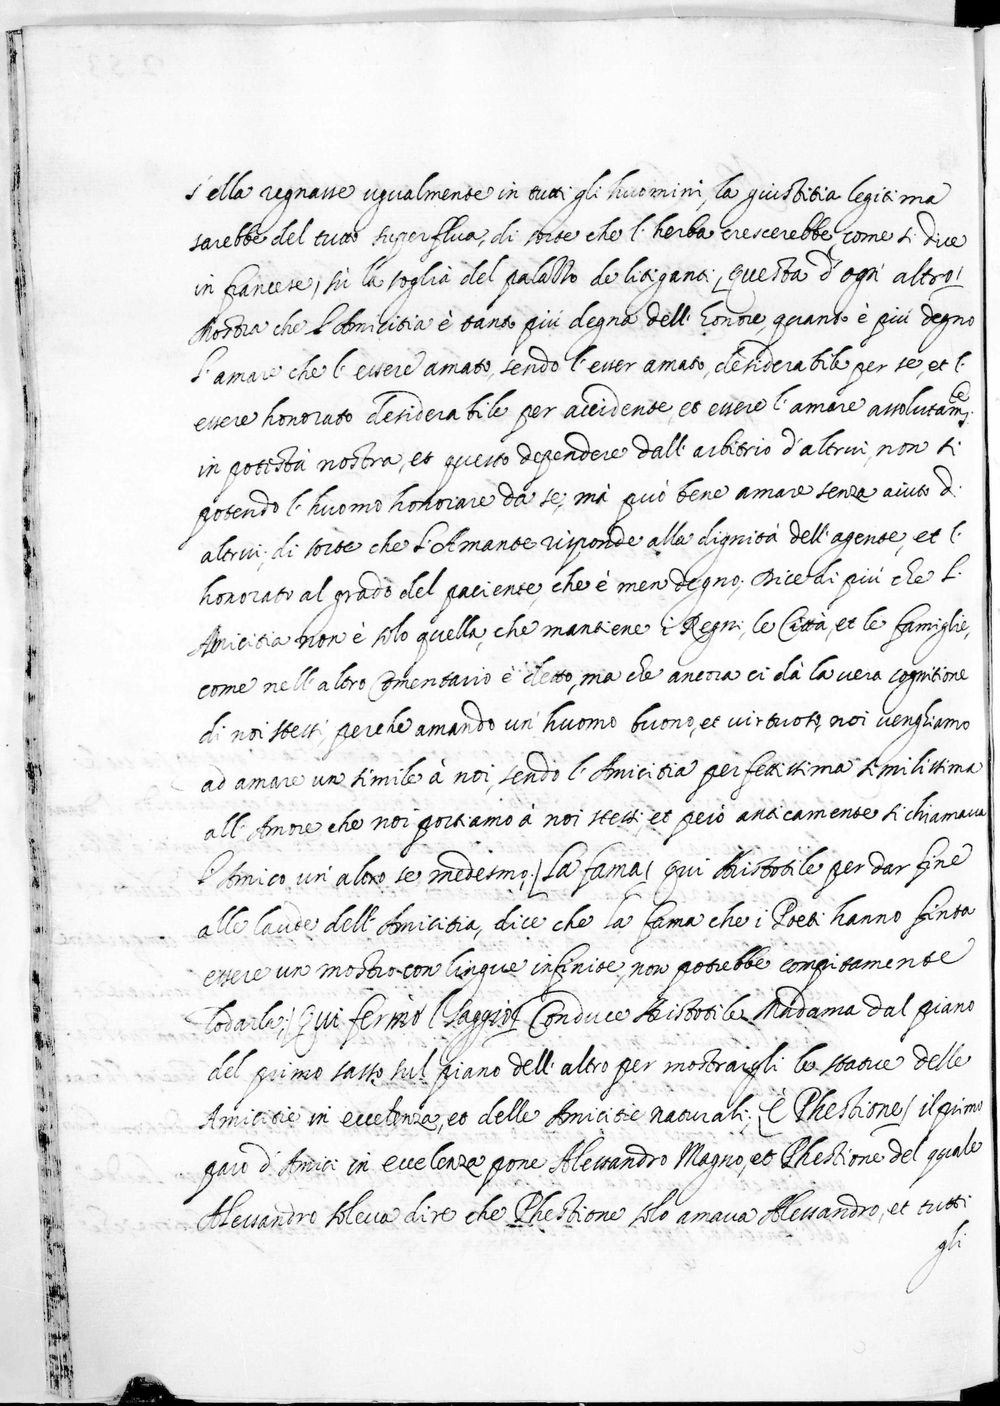 s'ella regnasse ugualmente in tutti gli huomini, la giustitia legitima
sarebbe del tutto superflua, di sorte che l'herba crescerebbe, come si dice
in francese, sù la soglià del palazzo de litiganti, (questa d'ogn'altro)
Mostra che l'Amicitia è tanto più degna dell'honore, quanto è più degno
l'amare che l'essere amato, sendo l'esser amato, desiderabile per se, et l'
essere honorato desiderabile per accidente, et essere l'amare assolutamte
in potestà nostra, et questo dependere dall'arbitrio d'altrui, non si
potendo l'huomo honorare da se, mà può bene amare senza aiuto d'
altrui, di sorte che l'Amante risponde alla dignità dell'agente, et l'
honorato al grado del paciente, che è men degno. Dice di più che l'
Amicitia non è solo quella, che mantiene i Regni, le Città, et le famiglie,
come nell'altro Comentario è detto, ma che ancora ci dà la vera cognitione
di noi stessi, perche amando un'huomo buono, et virtuoso, noi venghiamo
ad amare un simile à noi, sendo l'Amicitia perfettissima similissima
all'Amore che noi portiamo à noi stessi, et però anticamente si chiamava
l'Amico un'altro se medesmo; (La fama) Qui Aristotile per dar fine
alle laude dell'Amicitia, dice che la fama che i Poeti hanno finta
essere un mostro con lingue infinite, non potrebbe compitamente
lodarla; (Qui fermò l saggio) Conduce Aristotile Madama dal piano
del primo sasso sul piano dell'altro per mostrargli le statue delle
Amicitie in eccelenza, et delle Amicitie naturali; (è Phestione) il primo
paro d'Amici in eccelenza pone Alessandro Magno, et Phestione del quale
Alessandro soleva dire che Phestione solo amava Alessandro, et tutti
gli